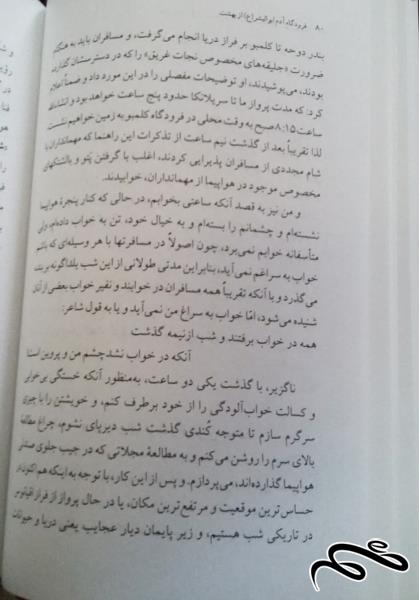 ۸۰ فرودگاه آدم ابوالبشر(ع) از بهشت
بندر دوحه تا کلمبو بر فراز دریا انجام می‌گرفت، و مسافران باید به هنگام
ضرورت «جلیقه‌های مخصوص نجات غریق» را که در دسترستان گذارده
بودند، می‌پوشیدند، او توضیحات مفصلی را در این مورد داد و ضمناً اعلام
کرد: که مدت پرواز ما تا سریلانکا حدود پنج ساعت خواهد بود و انشاءالله
ساعت ۸:۱۵ صبح به وقت محلی در فرودگاه کلمبو به زمین خواهیم نشست.
لذا تقریباً بعد از گذشت نیم ساعت از تذکرات این راهنما که مهمانداران با
شام مجددی از مسافران پذیرایی کردند، اغلب با گرفتن پتو و بالشتکهای
مخصوص موجود در هواپیما از مهمانداران، خوابیدند.
و من نیز به قصد آنکه ساعتی بخوابم، در حالی که کنار پنجرهٔ هواپیما
نشسته‌ام و چشمانم را بسته‌ام و به خیال خود، تن به خواب داده‌ام، ولی
متأسفانه خوابم نمی‌برد، چون اصولاً در مسافرتها با هر وسیله‌ای که باشم
خواب به سراغم نمی‌آید، بنابراین مدتی طولانی از این شب یلداگونه بر من
می‌گذرد و با آنکه تقریباً همه مسافران در خوابند و نفیر خواب بعضی از آنان
شنیده می‌شود، امّا خواب به سراغ من نمی‌آید و یا به قول شاعر:
همه در خواب برفتند و شب از نیمه گذشت
آنکه در خواب نشد چشم من و پروین است!
ناگزیر، با گذشت یکی دو ساعت، به‌منظور آنکه خستگی بی‌خوابی
و کسالت خواب‌آلودگی را از خود برطرف کنم، و خویشتن را با چیزی
سرگرم سازم تا متوجه کُندی گذشت شب دیرپای نشوم، چراغ مطالعهٔ
بالای سرم را روشن می‌کنم و به مطالعهٔ مجلاتی که در جیب جلوی صندلی
هواپیما گذارده‌اند، می‌پردازم. و پس از این کار، با توجه به اینکه هم اکنون در
حساس‌ترین موقعیت و مرتفع‌ترین مکان، یا در حال پرواز از فراز اقیانوس
در تاریکی شب هستیم، و زیر پایمان دیار عجایب یعنی دریا و حیوانات